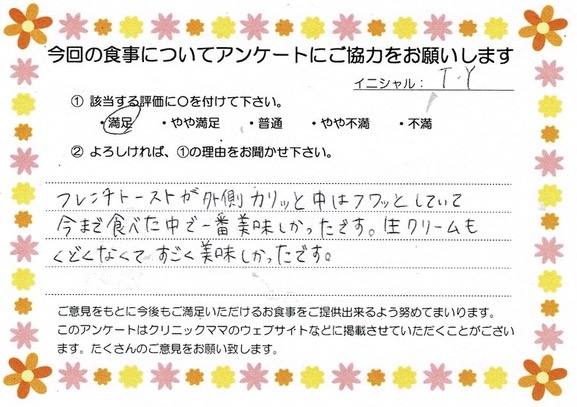 今回の食事についてアンケートにご協力をお願いします
イニシャル： T.Y
① 該当する評価に○を付けて下さい。
・満足 ・やや満足 ・普通 ・やや不満 ・不満
② よろしければ、①の理由をお聞かせ下さい。
フレンチトーストが外側カリッと中はフワッとしていて
今まで食べた中で一番美味しかったです。生クリームも
くどくなくて すごく美味しかったです。
ご意見をもとに今後もご満足いただけるお食事をご提供出来るよう努めてまいります。
このアンケートはクリニックママのウェブサイトなどに掲載させていただくことがござい
ます。たくさんのご意見をお願い致します。